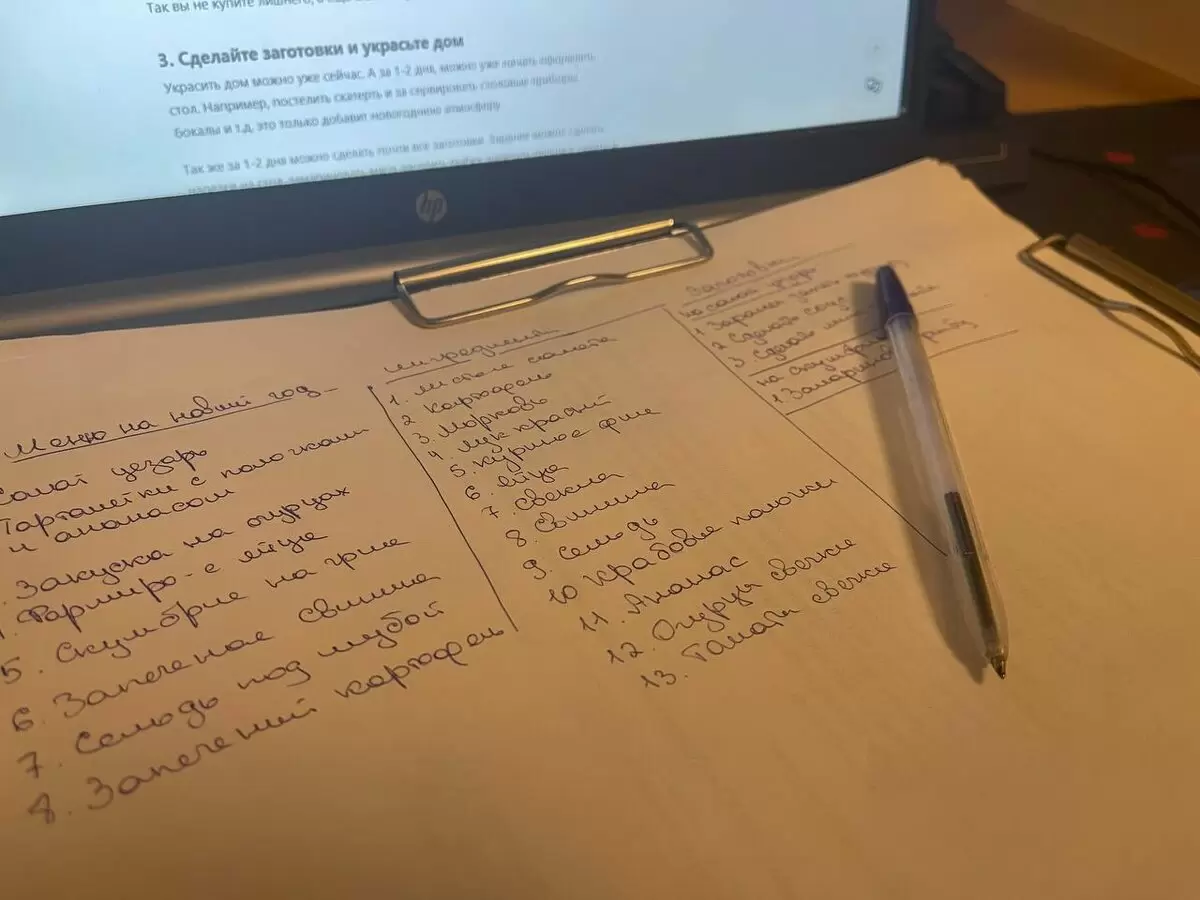 Так вы не купите лишнего,
3. Сделайте заготовки и украсьте дом
Украсить дом можно уже сейчас. А за 1-2 дня, можно уже начать оформлять
стол. Например, постелить скатерть и за сервировать столовые приборы,
бокалы и т.д, это только добавит новогоднюю атмосферу
Так же за 1-2 дня можно сделать почти все заготовки. Заранее можно сделать
hp
Меню на новый год
Салат цезарь
Тарталетки с палочками
и ананасом
Закуска на огурцах
Фарширо-е яйца
5. Скумбрие на гриле
6. Запеченая свинина
7. Сельодь под шубой
8. Запеченный картофель
ингредиенты
1. листья салата
2 Картофель
3. Морковь
4. лук красный
5. куриное филе
6. яйца
7. свекла
8. Свинина
9. Сельодь
10 Крабовые палочки
11. Ананас
12. Огурцы свежие
13. Томаты свежие
Заготовки
на салат цезарь
1 Заранее
2 Сделать соус
3 Сделать
на скумбрию
1. Замариновать рыбу